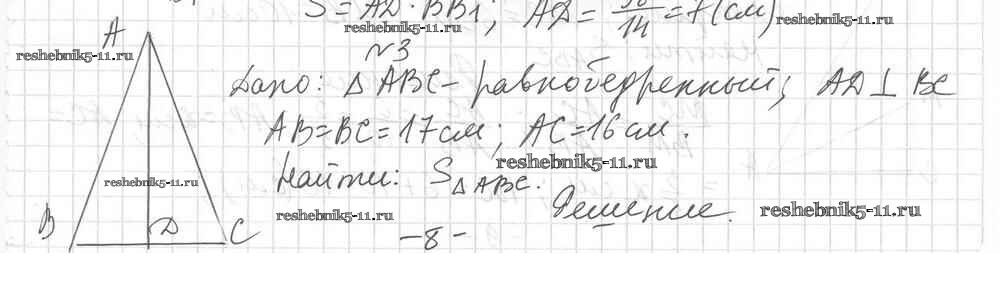 S = AD · BB1; AD = 98/14 = 7 (см)
reshebnik5-11.ru reshebnik5-11.ru
A reshebnik5-11.ru №3
Дано: △ ABC – равнобедренный; AD ⊥ BC
AB = BC = 17 см; AC = 16 см.
reshebnik5-11.ru
reshebnik5-11.ru Найти: S△ABC.
reshebnik5-11.ru Решение. reshebnik5-11.ru
B D C
– 8 –